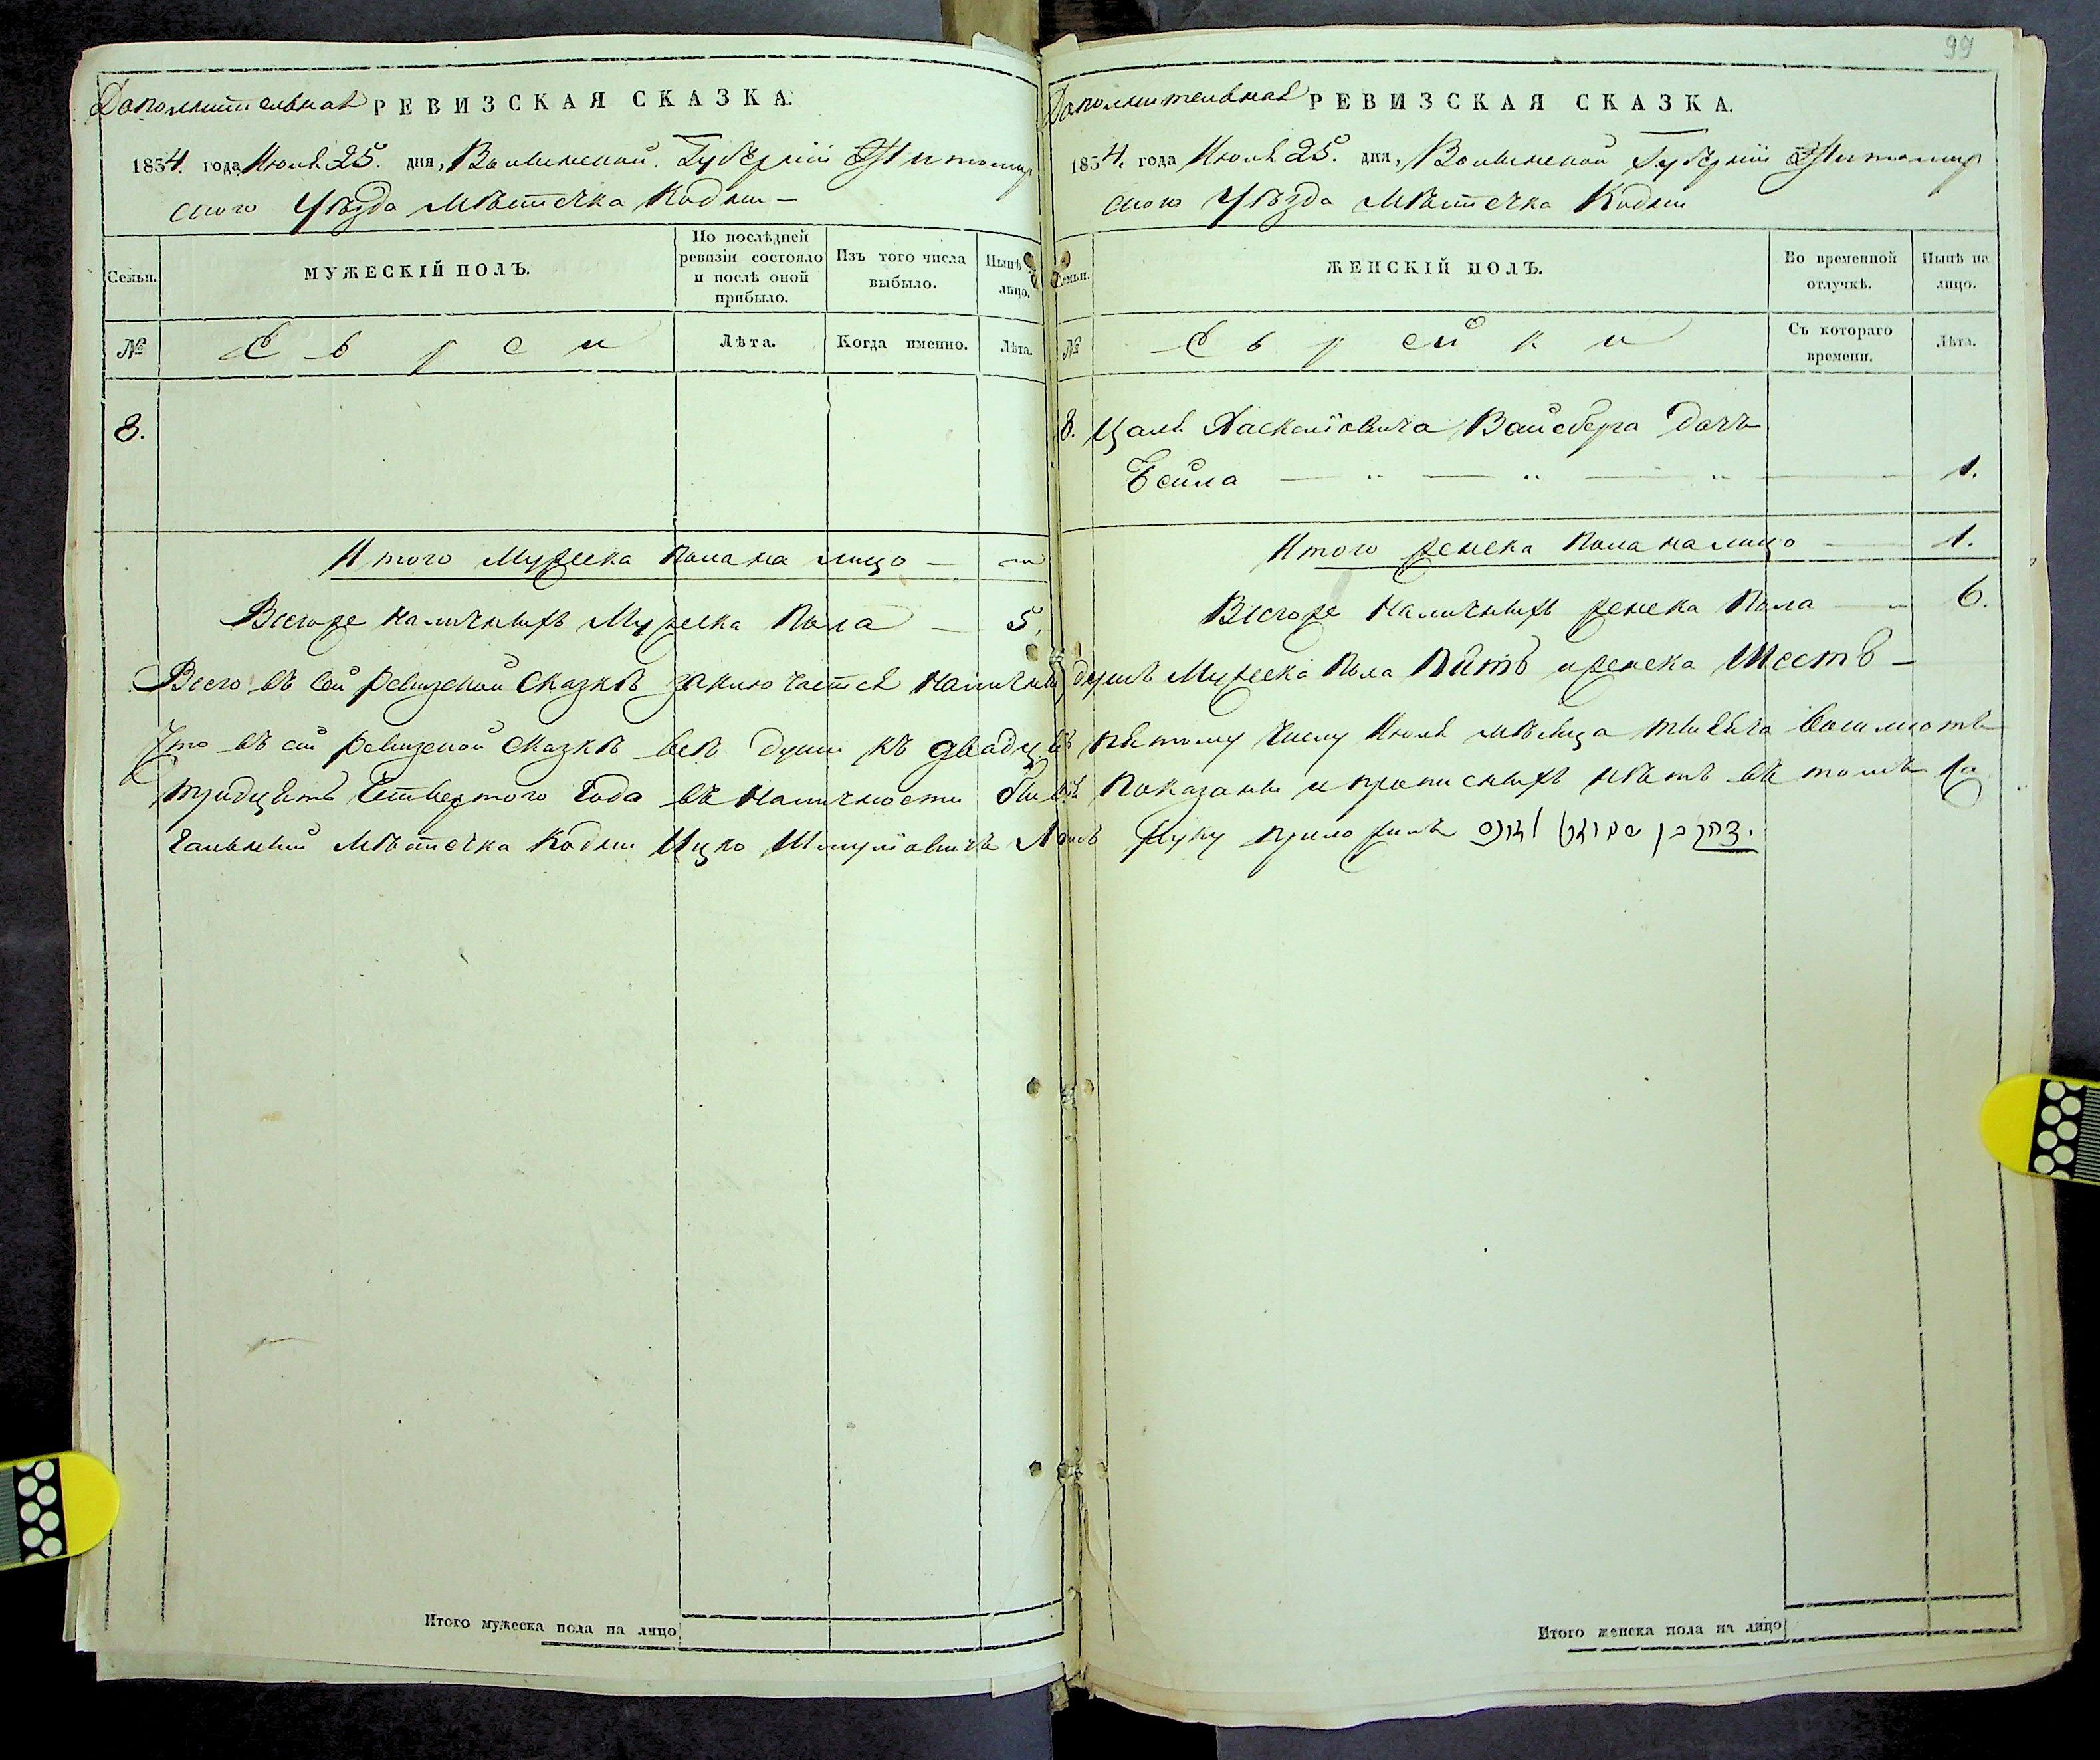 Дополнительная РЕВИЗСКАЯ СКАЗКА.
1834. года Июля 25. дня, Волынской Губерніи Житомир
ского Уѣзда Мѣстечка Кодни —
Семьи.
МУЖЕСКІЙ ПОЛЪ.
По послѣдней ревизіи состояло и послѣ оной прибыло.
Изъ того числа выбыло.
Нынѣ лицо.
№
Евреи
Лѣта.
Когда именно.
Лѣта.
8.
Итого Мужеска пола на лицо —
Всегоже наличныхъ Мужеска Пола — 5.
Всего въ сей ревизской Сказкѣ заключается Наличны
Что въ сей ревизской Сказкѣ всѣ души къ двадца
тридцать Четвертого Года въ Наличности
Мѣстечка Кодни Ицко Шмулiовичъ
Итого мужеска пола на лицо
99
Дополнительная РЕВИЗСКАЯ СКАЗКА.
1834. года Июля 25. дня, Волынской Губерніи Житомир
ского Уѣзда Мѣстечка Кодни
Семьи.
ЖЕНСКІЙ ПОЛЪ.
Во временной отлучкѣ.
Нынѣ на лицо.
№
Еврейки
Съ котораго времени.
Лѣта.
8. Цаля Хаскелiовича Вайсберга дочь
Бейла — 1.
Итого женска пола налицо — 1.
Всегоже Наличныхъ женска Пола — 6.
душъ Мужеска Пола Пять и женска Шесть —
пятому числу Июля мѣсяца тысяча восимьсотъ
показаны и прописныхъ нѣтъ въ томъ Ка
руку приложилъ
Итого женска пола на лицо